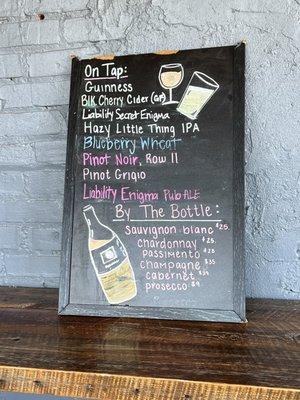 On Tap:
Guinness
Blk Cherry Cider (GF)
Liability Secret Enigma
Hazy Little Thing IPA
Blueberry Wheat
Pinot Noir, Row 11
Pinot Grigio
Liability Enigma Pub Ale
By The Bottle:
Sauvignon blanc $25
chardonnay $25
passimento $28
champagne $35
cabernet $34
prosecco $9